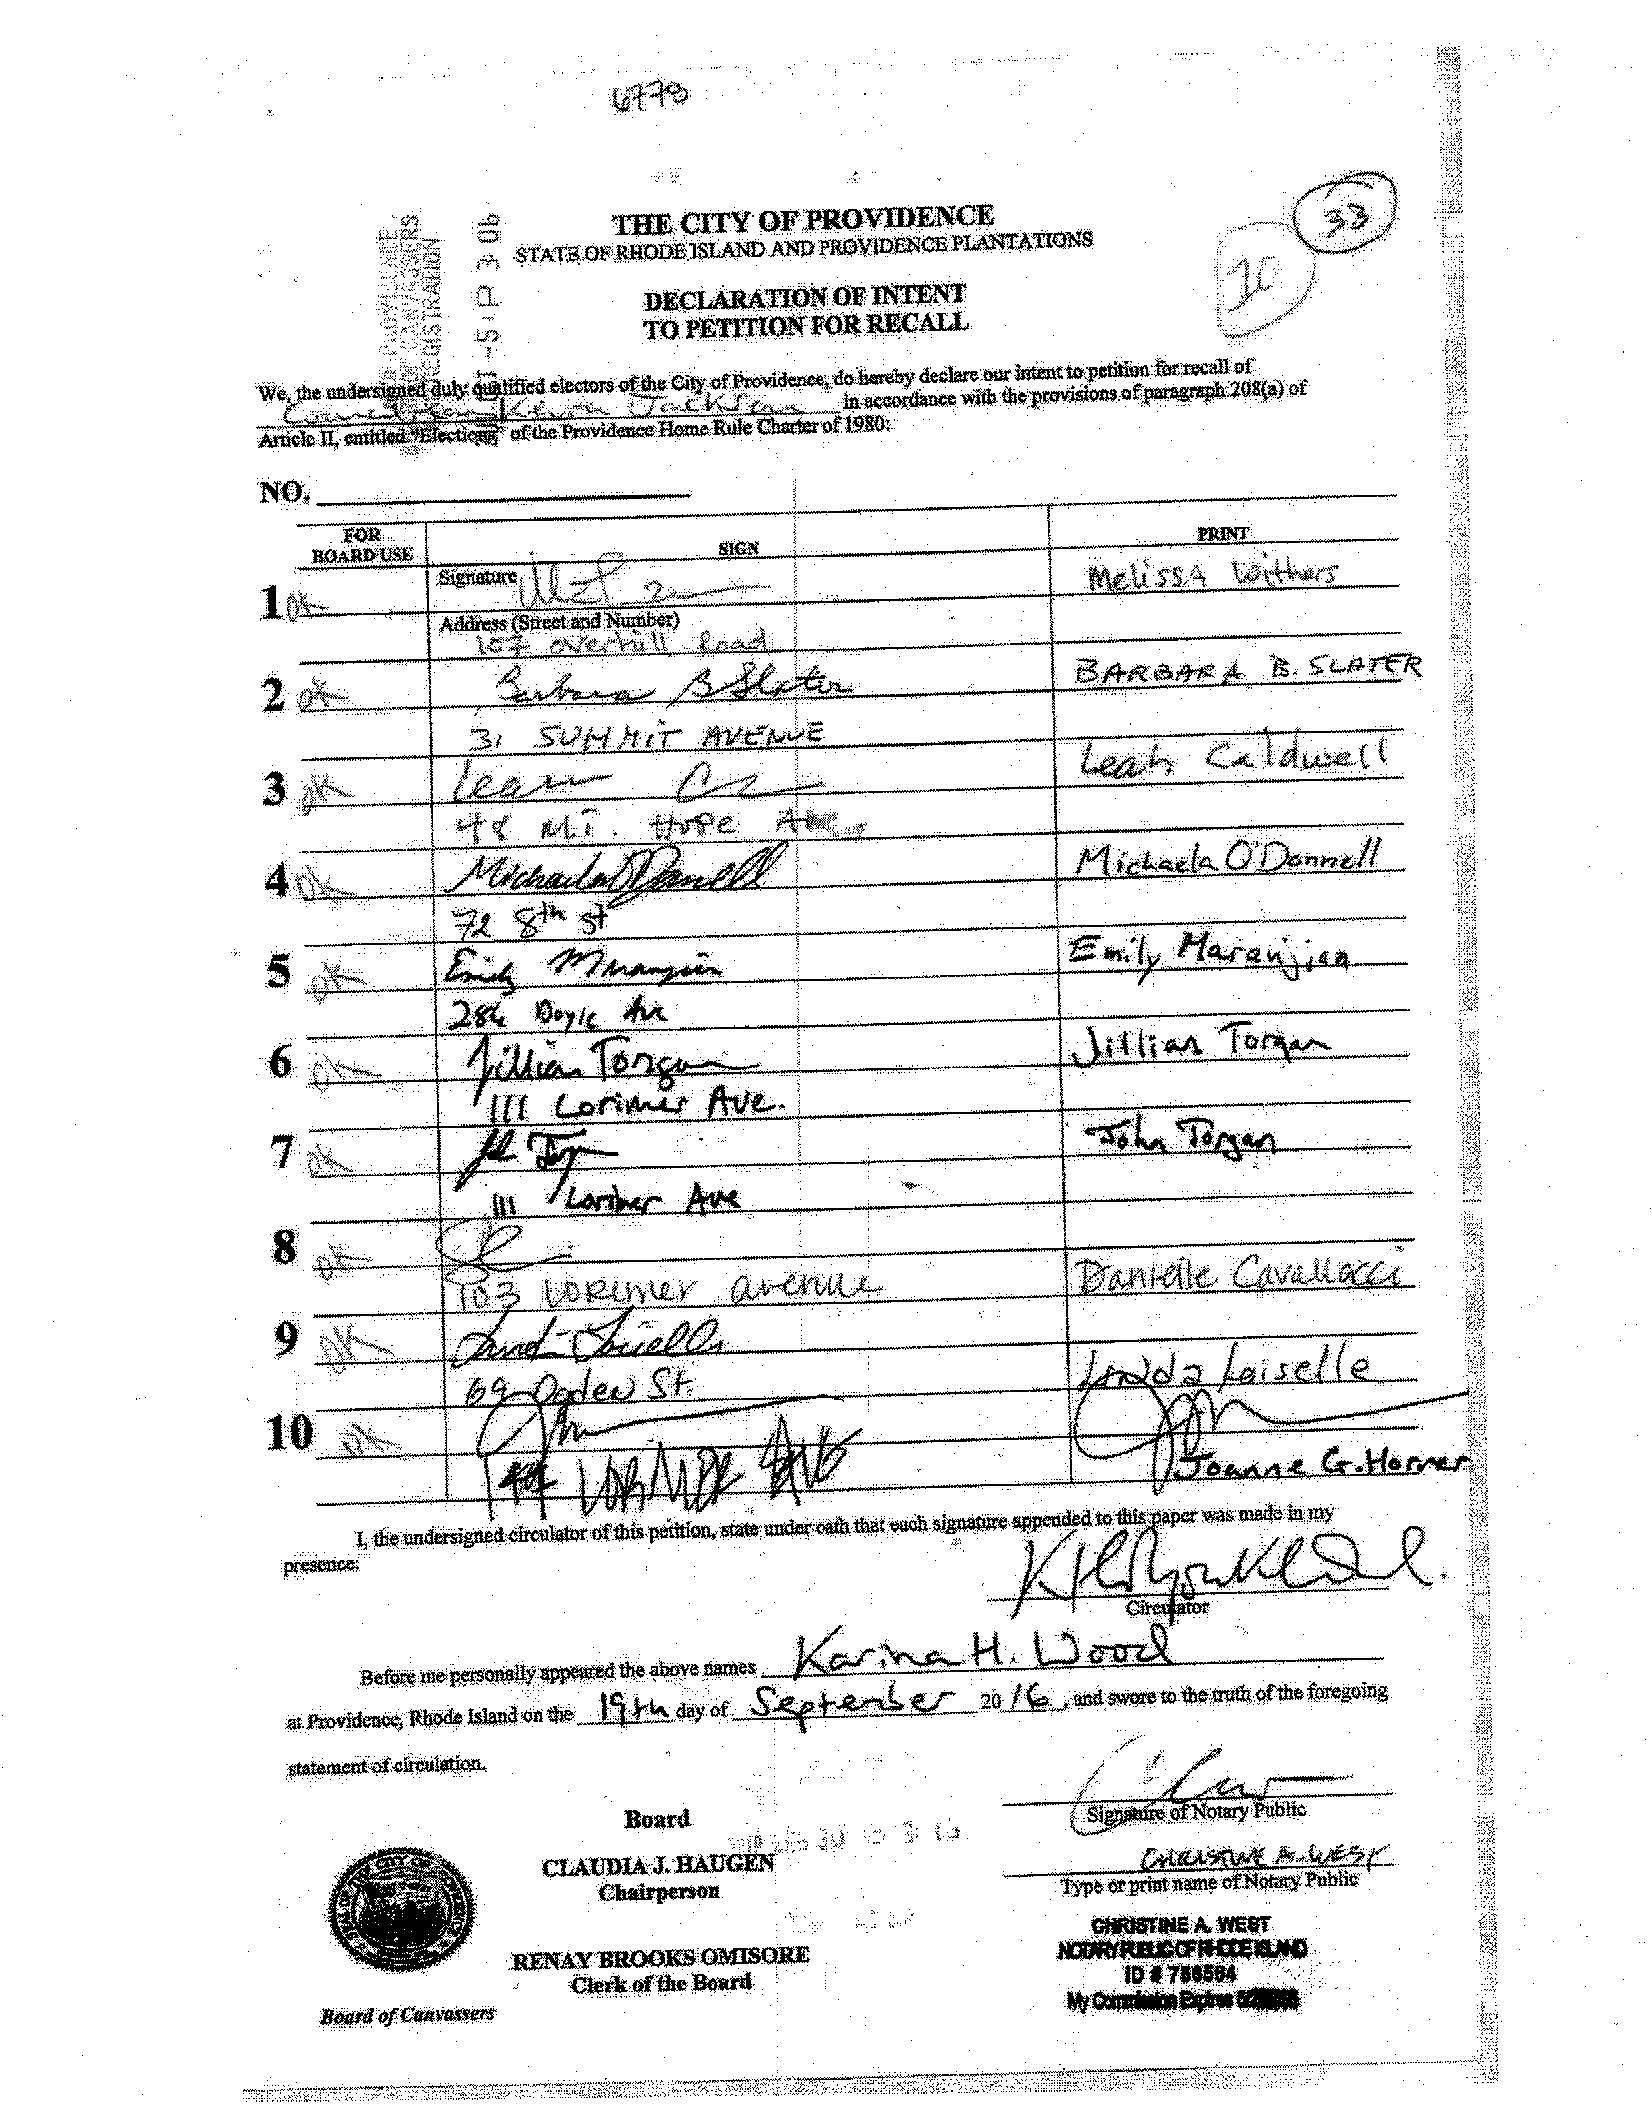 6773
33
10
THE CITY OF PROVIDENCE
STATE OF RHODE ISLAND AND PROVIDENCE PLANTATIONS
DECLARATION OF INTENT
TO PETITION FOR RECALL
We, the undersigned duly qualified electors of the City of Providence, do hereby declare our intent to petition for recall of
Councilman Kevin Jackson in accordance with the provisions of paragraph 208(a) of
Article II, entitled "Elections" of the Providence Home Rule Charter of 1980:
NO.
FOR BOARD USE SIGN PRINT
1 OK Signature Melissa Withers
Address (Street and Number)
157 Overhill Road
2 OK Barbara B Slater BARBARA B. SLATER
31 SUMMIT AVENUE
3 OK Leah Leah Caldwell
48 MT. HOPE Ave.
4 OK Michaela O'Donnell Michaela O'Donnell
72 8th st
5 OK Emily Maranjian Emily Maranjian
284 Doyle Ave
6 OK Jillian Torgan Jillian Torgan
111 Lorimer Ave.
7 OK John Torgan
111 Lorimer Ave
8 OK
103 Lorimer avenue Danielle Cavallacci
9 OK Linda Loiselle
69 Ogden St. Linda Loiselle
10 OK
LORIMER AVE Joanne G. Horner
I, the undersigned circulator of this petition, state under oath that each signature appended to this paper was made in my
presence:
Circulator
Before me personally appeared the above names Karina H. Wood
at Providence, Rhode Island on the 19th day of September 2016, and swore to the truth of the foregoing
statement of circulation.
Signature of Notary Public
Board
CHRISTINE A. WEST
CLAUDIA J. HAUGEN
Type or print name of Notary Public
Chairperson
CHRISTINE A. WEST
NOTARY PUBLIC OF RHODE ISLAND
RENAY BROOKS OMISORE
ID # 756564
Clerk of the Board
My Commission Expires
Board of Canvassers